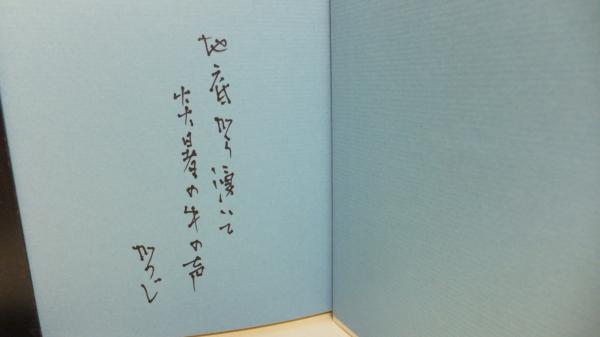 地底から湧いて
炎暑の牛の声
かつじ